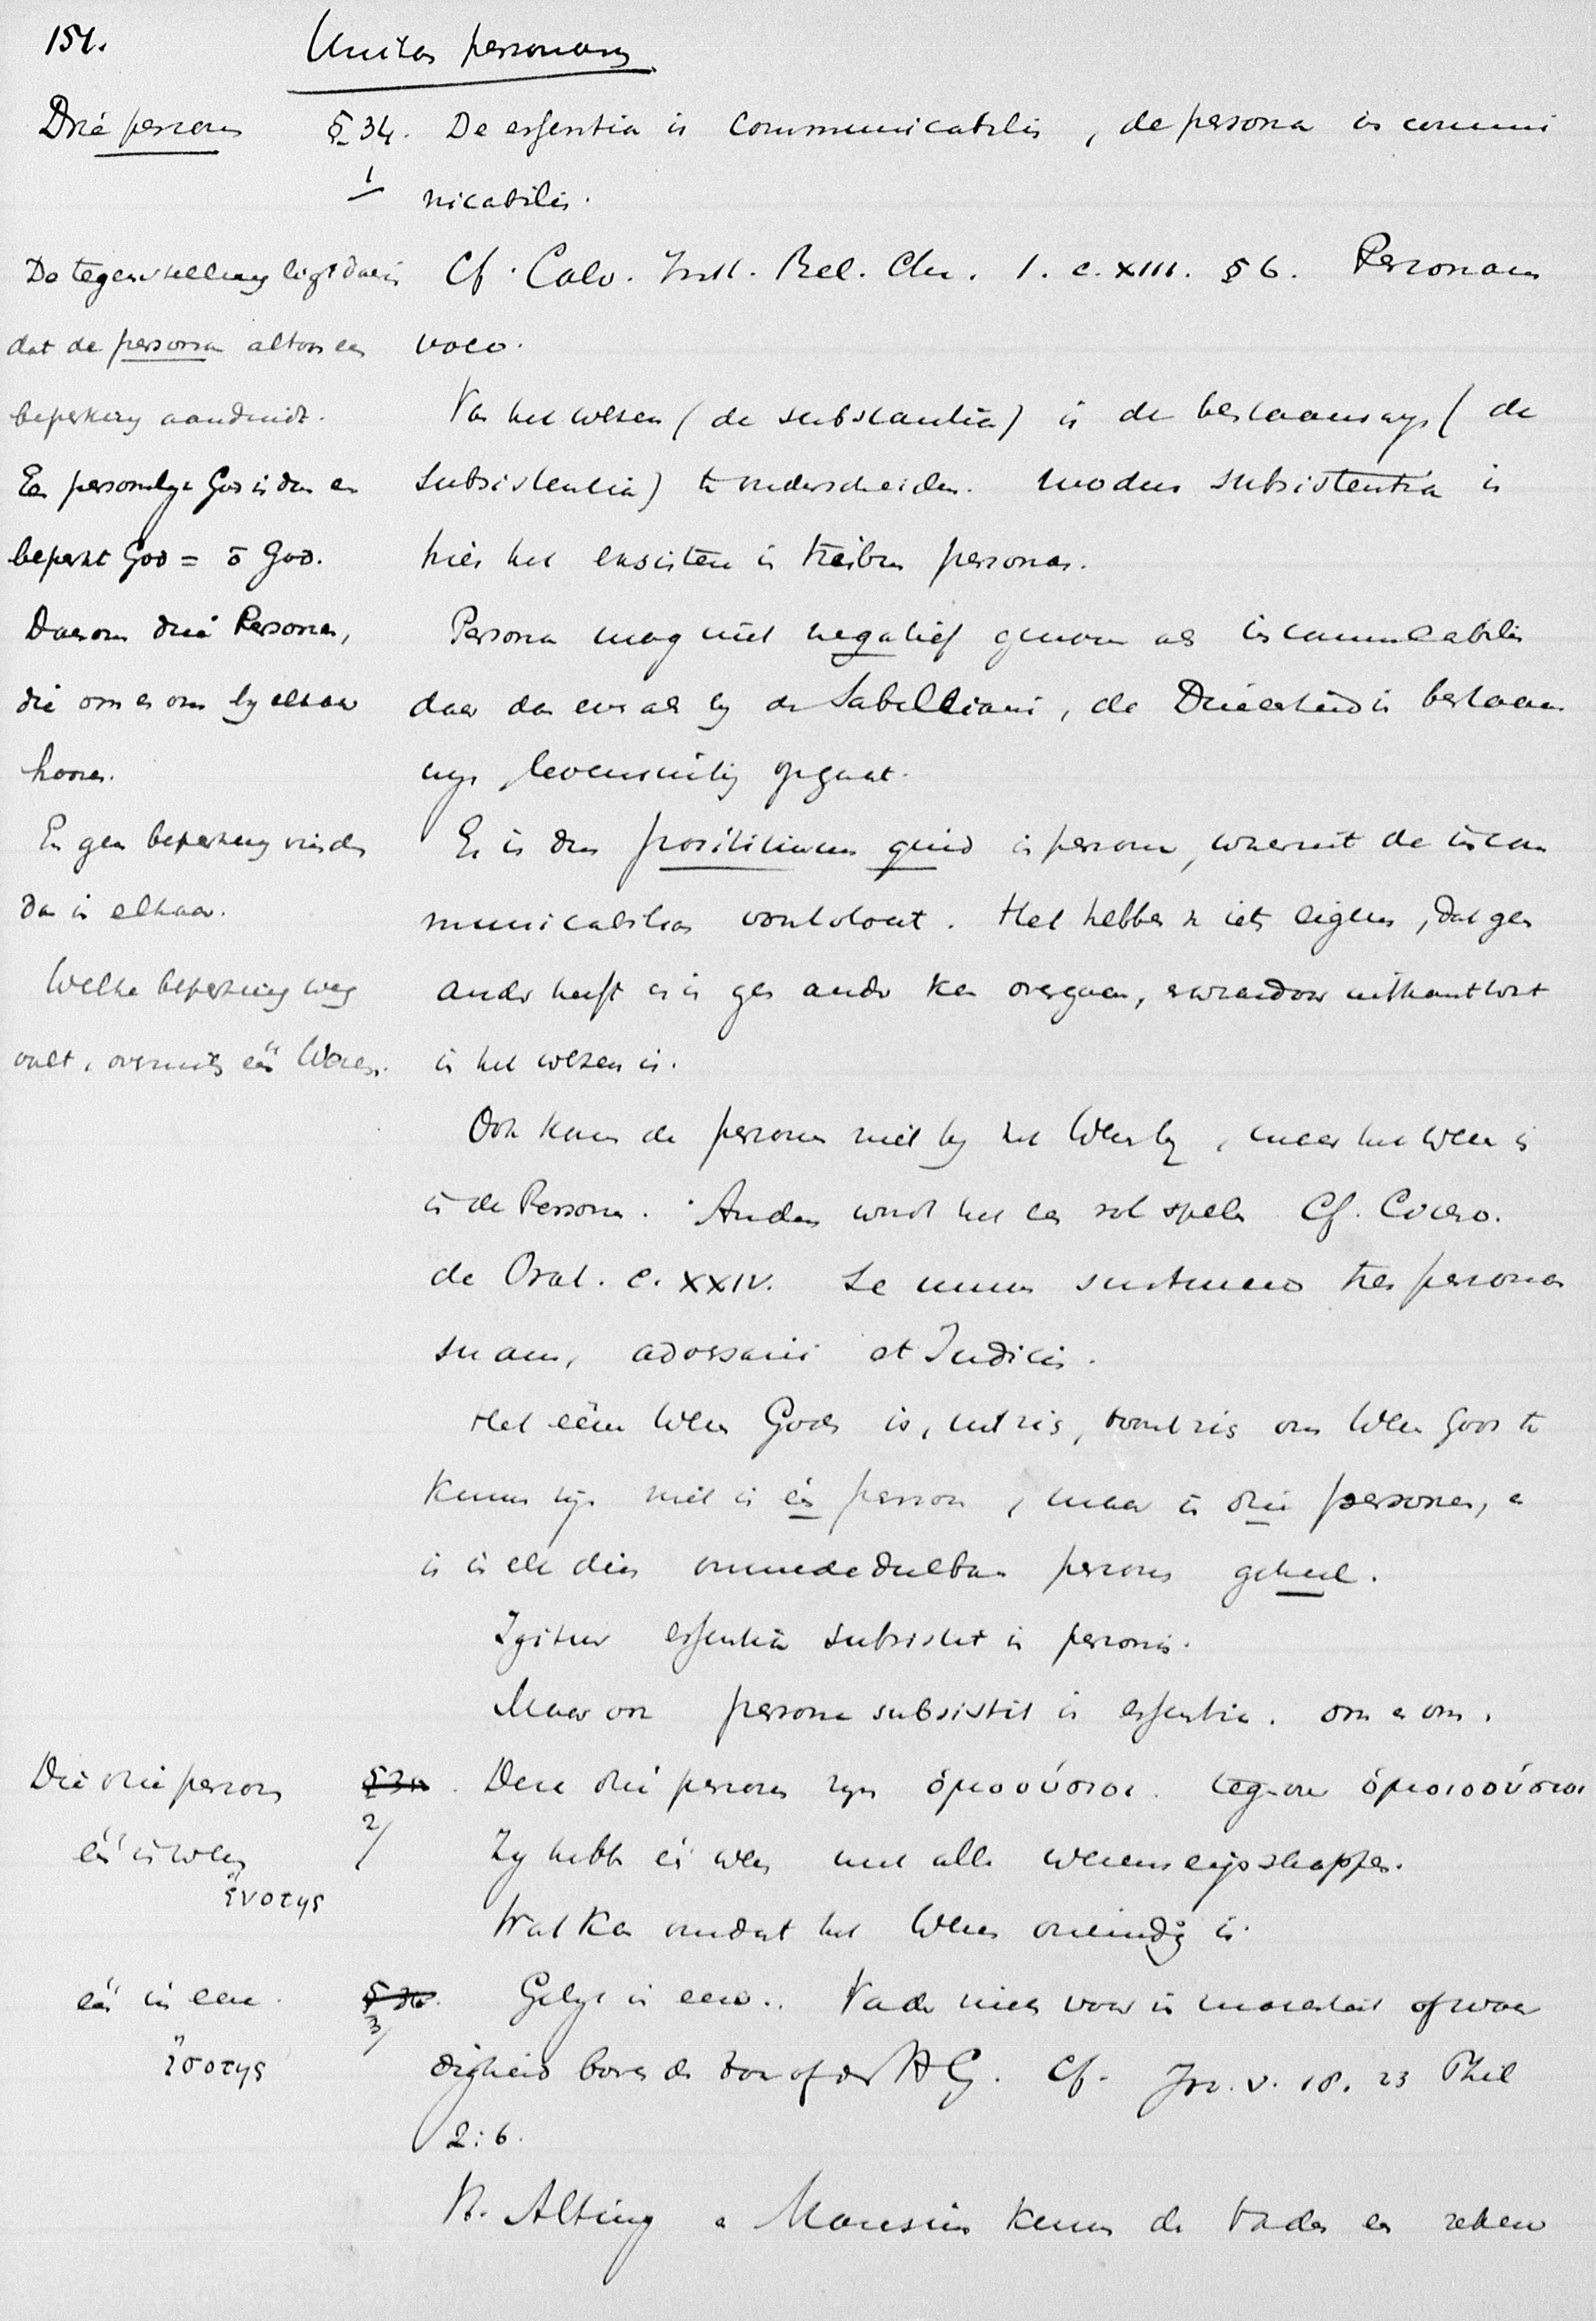 151.
Unitas personarum
Drie personen
§ 34. De essentia is communicabilis, de persona is commu
1
nicabilis.
De tegenstelling ligt daarin
Cf. Calv. Inst. Rel. Chr. 1. c. XIII. § 6. Personam
dat de persona altoos een
voco.
beperking aanduidt.
Van het wezen (de substantia) is de bestaanswijs (de
Een persoonlyk God is dus een
subsistentia) te onderscheiden. Modus subsistentia is
beperkt God = o God.
hier het existere in tribus personas.
Daarom drie Personen,
Persona mag niet negatief genomen als incommunicabilis
die om en om by elkaar
daar dan even als by de Sabelliani, de Drieeenheid in bestaans
horen.
wys levensuiting opgaat.
En geen beperking vinden
Er is dus positivum quid in persona, waaruit de incom
dan in elkaar.
municabilitas voortvloeit. Het hebben v iets eigens, dat geen
Welke beperking weg
ander heeft en in geen ander kan overgaan,
valt, overmits één Wezen.
in het wezen is.
Ook komen de personen niet by het Wezen by, maar het Wezen is
in de Persona. Anders wordt het een rol spelen Cf. Cicero.
de Orat. c. XXIV. Se unus sustineo tres personas
suam, adversarii et Iudicis.
Het ééne Wezen Gods is, uit zig, door zig om Wezen Gods te
kunnen zijn niet in één persoon, maar in drie personen, en
is in elk dier onmededeelbare personen geheel.
Igitur essentia subsistit in personis.
Maar ook persona subsistit in essentia. om en om.
Die drie personen
§ 35. Deze drie personen zyn ὁμοούσιοι. tegenover ὁμοιοούσιοι
2/
één in wezen
Zy hebben één wezen met alle wezenseigenschappen.
ἑνοτης
Wat kan omdat het Wezen oneindig is.
één in eere.
§ 36. Gelyk in eere. Vader niets voor in majesteit of waar
3/
ἰσοτης
digheid boven den Zoon of den H G. Cf. Joh. v. 18. 23 Phil
2:6.
H. Alting en Maresius kennen de Vader een zekere